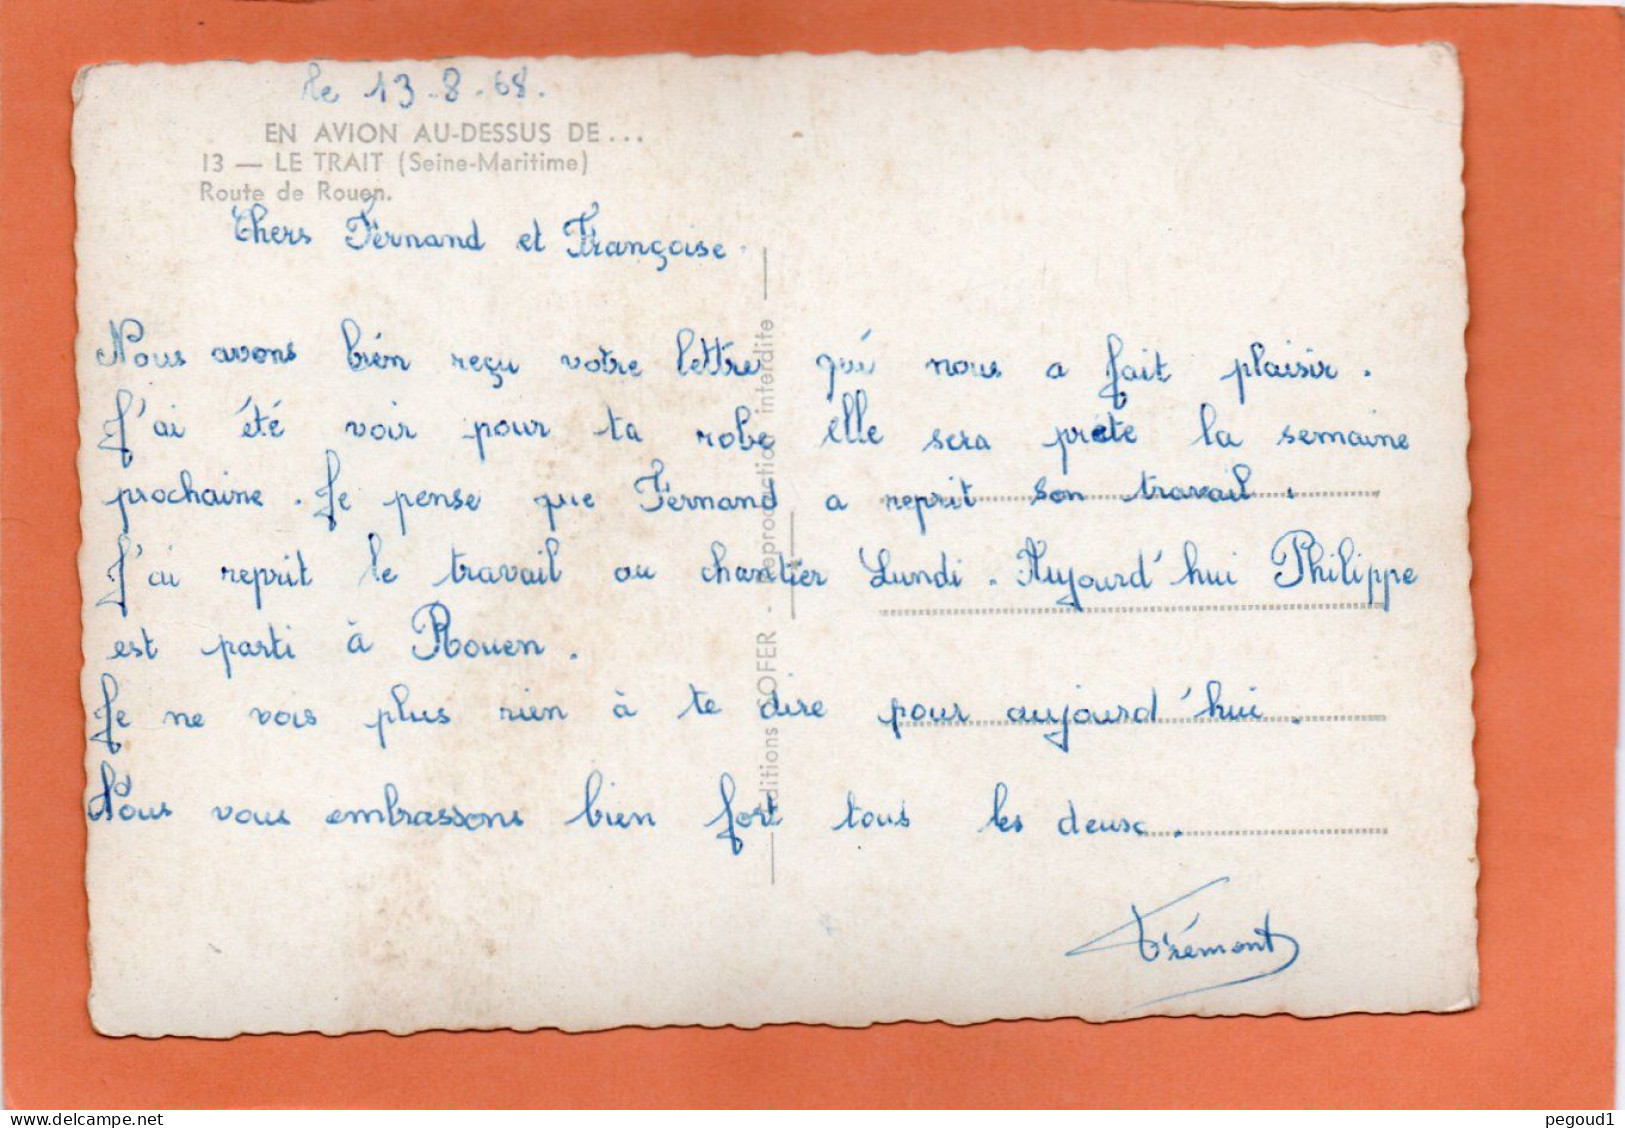 le 13.8.68.
EN AVION AU-DESSUS DE...
13 — LE TRAIT (Seine-Maritime)
Route de Rouen.
Chers Fernand et Françoise.
Nous avons bien reçu votre lettre qui nous a fait plaisir.
J'ai été voir pour ta robe elle sera prete la semaine
prochaine. Je pense que Fernand a reprit son travail.
J'ai reprit le travail au chantier Lundi. Aujourd'hui Philippe
est parti à Rouen.
Je ne vois plus rien à te dire pour aujourd'hui.
Nous vous embrassons bien fort tous les deux.
Trémont
Editions SOFER - Reproduction interdite
pegoud1